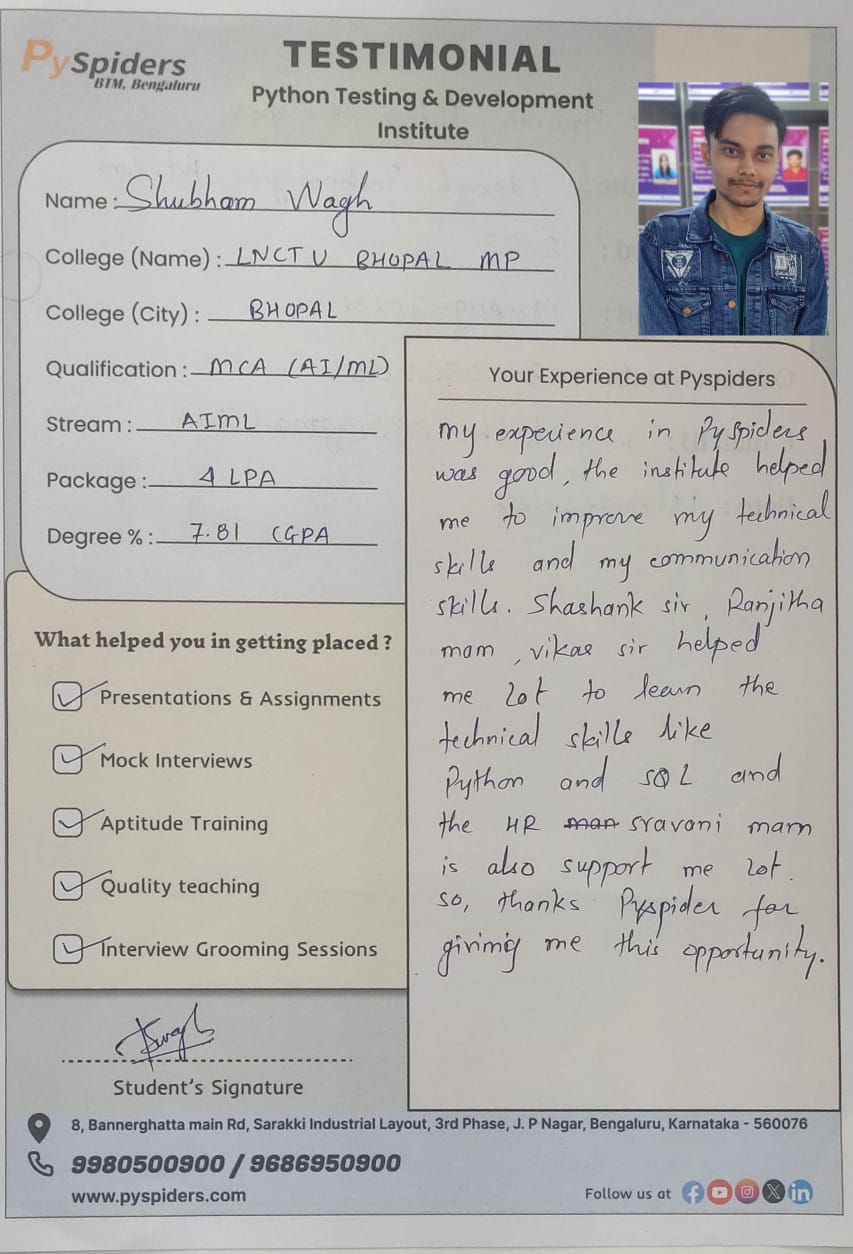 PySpiders
BTM, Bengaluru
TESTIMONIAL
Python Testing & Development
Institute
Name : Shubham Wagh
College (Name) : LNCTU BHOPAL MP
College (City) : BHOPAL
Qualification : MCA (AI/ML)
Stream : AIML
Package : 4 LPA
Degree % : 7.81 CGPA
What helped you in getting placed ?
Presentations & Assignments
Mock Interviews
Aptitude Training
Quality teaching
Interview Grooming Sessions
Your Experience at Pyspiders
my experience in PySpiders
was good, the institute helped
me to improve my technical
skills and my communication
skills. Shashank sir, Ranjitha
mam, vikas sir helped
me lot to learn the
technical skills like
Python and SQL and
the HR man sravani mam
is also support me lot.
so, thanks Pyspider for
giving me this opportunity.
Student's Signature
8, Bannerghatta main Rd, Sarakki Industrial Layout, 3rd Phase, J. P Nagar, Bengaluru, Karnataka - 560076
9980500900 / 9686950900
www.pyspiders.com
Follow us at